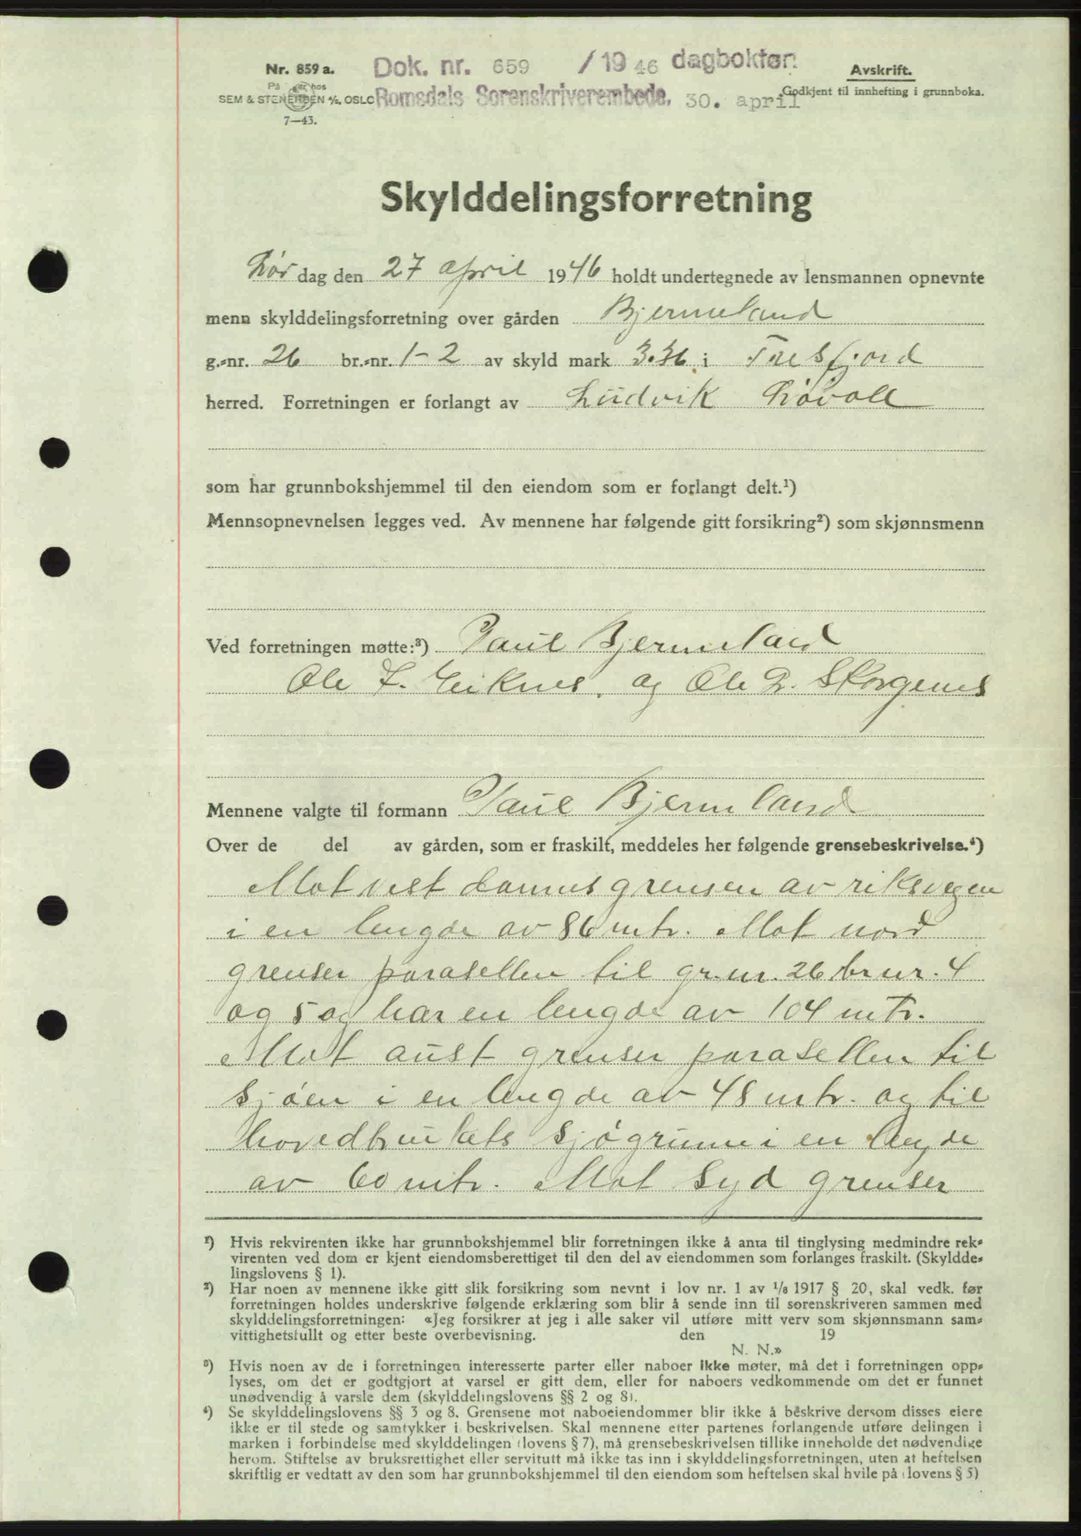 Nr. 859 a.
På lager hos
SEM & STENERSEN A/S, OSLO
7—43.
Dok. nr. 659 / 19 46 dagboktøn
Romsdals Sorenskriverembede, 30. april
Avskrift.
Godkjent til innhefting i grunnboka.
Skylddelingsforretning
Lør dag den 27 april 1946 holdt undertegnede av lensmannen opnevnte
menn skylddelingsforretning over gården Bjermeland
g.-nr. 26 br.-nr. 1-2 av skyld mark 3.36 i Tresfjord
herred. Forretningen er forlangt av Ludvik Løvoll
som har grunnbokshjemmel til den eiendom som er forlangt delt.¹)
Mennsopnevnelsen legges ved. Av mennene har følgende gitt forsikring²) som skjønnsmenn
Ved forretningen møtte:³) Paul Bjermeland
Ole Eiknes, og Ole Skorgenes
Mennene valgte til formann Paul Bjermeland
Over de del av gården, som er fraskilt, meddeles her følgende grensebeskrivelse.⁴)
Mot vest dannes grensen av riksvegen
i en lengde av 86 mtr. Mot nord
grenser parasellen til gr.nr. 26 br nr. 4
og 5 og har en lengde av 104 mtr.
Mot aust grenser parasellen til
sjøen i en lengde av 48 mtr. og til
hovedbrukets sjøgrunn i en lengde
av 60 mtr. Mot syd grenser
¹) Hvis rekvirenten ikke har grunnbokshjemmel blir forretningen ikke å anta til tinglysing medmindre rek-
virenten ved dom er kjent eiendomsberettiget til den del av eiendommen som forlanges fraskilt. (Skyldde-
lingslovens § 1).
²) Har noen av mennene ikke gitt slik forsikring som nevnt i lov nr. 1 av 1/6 1917 § 20, skal vedk. før
forretningen holdes underskrive følgende erklæring som blir å sende inn til sorenskriveren sammen med
skylddelingsforretningen: «Jeg forsikrer at jeg i alle saker vil utføre mitt verv som skjønnsmann sam-
vittighetsfullt og etter beste overbevisning. den 19
N. N.»
³) Hvis noen av de i forretningen interesserte parter eller naboer ikke møter, må det i forretningen opp-
lyses, om det er godtgjort at varsel er gitt dem, eller for naboers vedkommende om det er funnet
unødvendig å varsle dem (skylddelingslovens §§ 2 og 8).
⁴) Se skylddelingslovens §§ 3 og 8. Grensene mot naboeiendommer blir ikke å beskrive dersom disses eiere
ikke er til stede og samtykker i beskrivelsen. Skal mennene etter partenes forlangende utføre delingen i
marken i forbindelse med skylddelingen (lovens § 7), må grensebeskrivelsen tillike inneholde det nødvendige
herom. Stiftelse av bruksrettighet eller servitutt må ikke tas inn i skylddelingsforretningen, uten at heftelsen
skriftlig er vedtatt av den som har grunnbokshjemmel til den eiendom som heftelsen skal hvile på (lovens § 5)